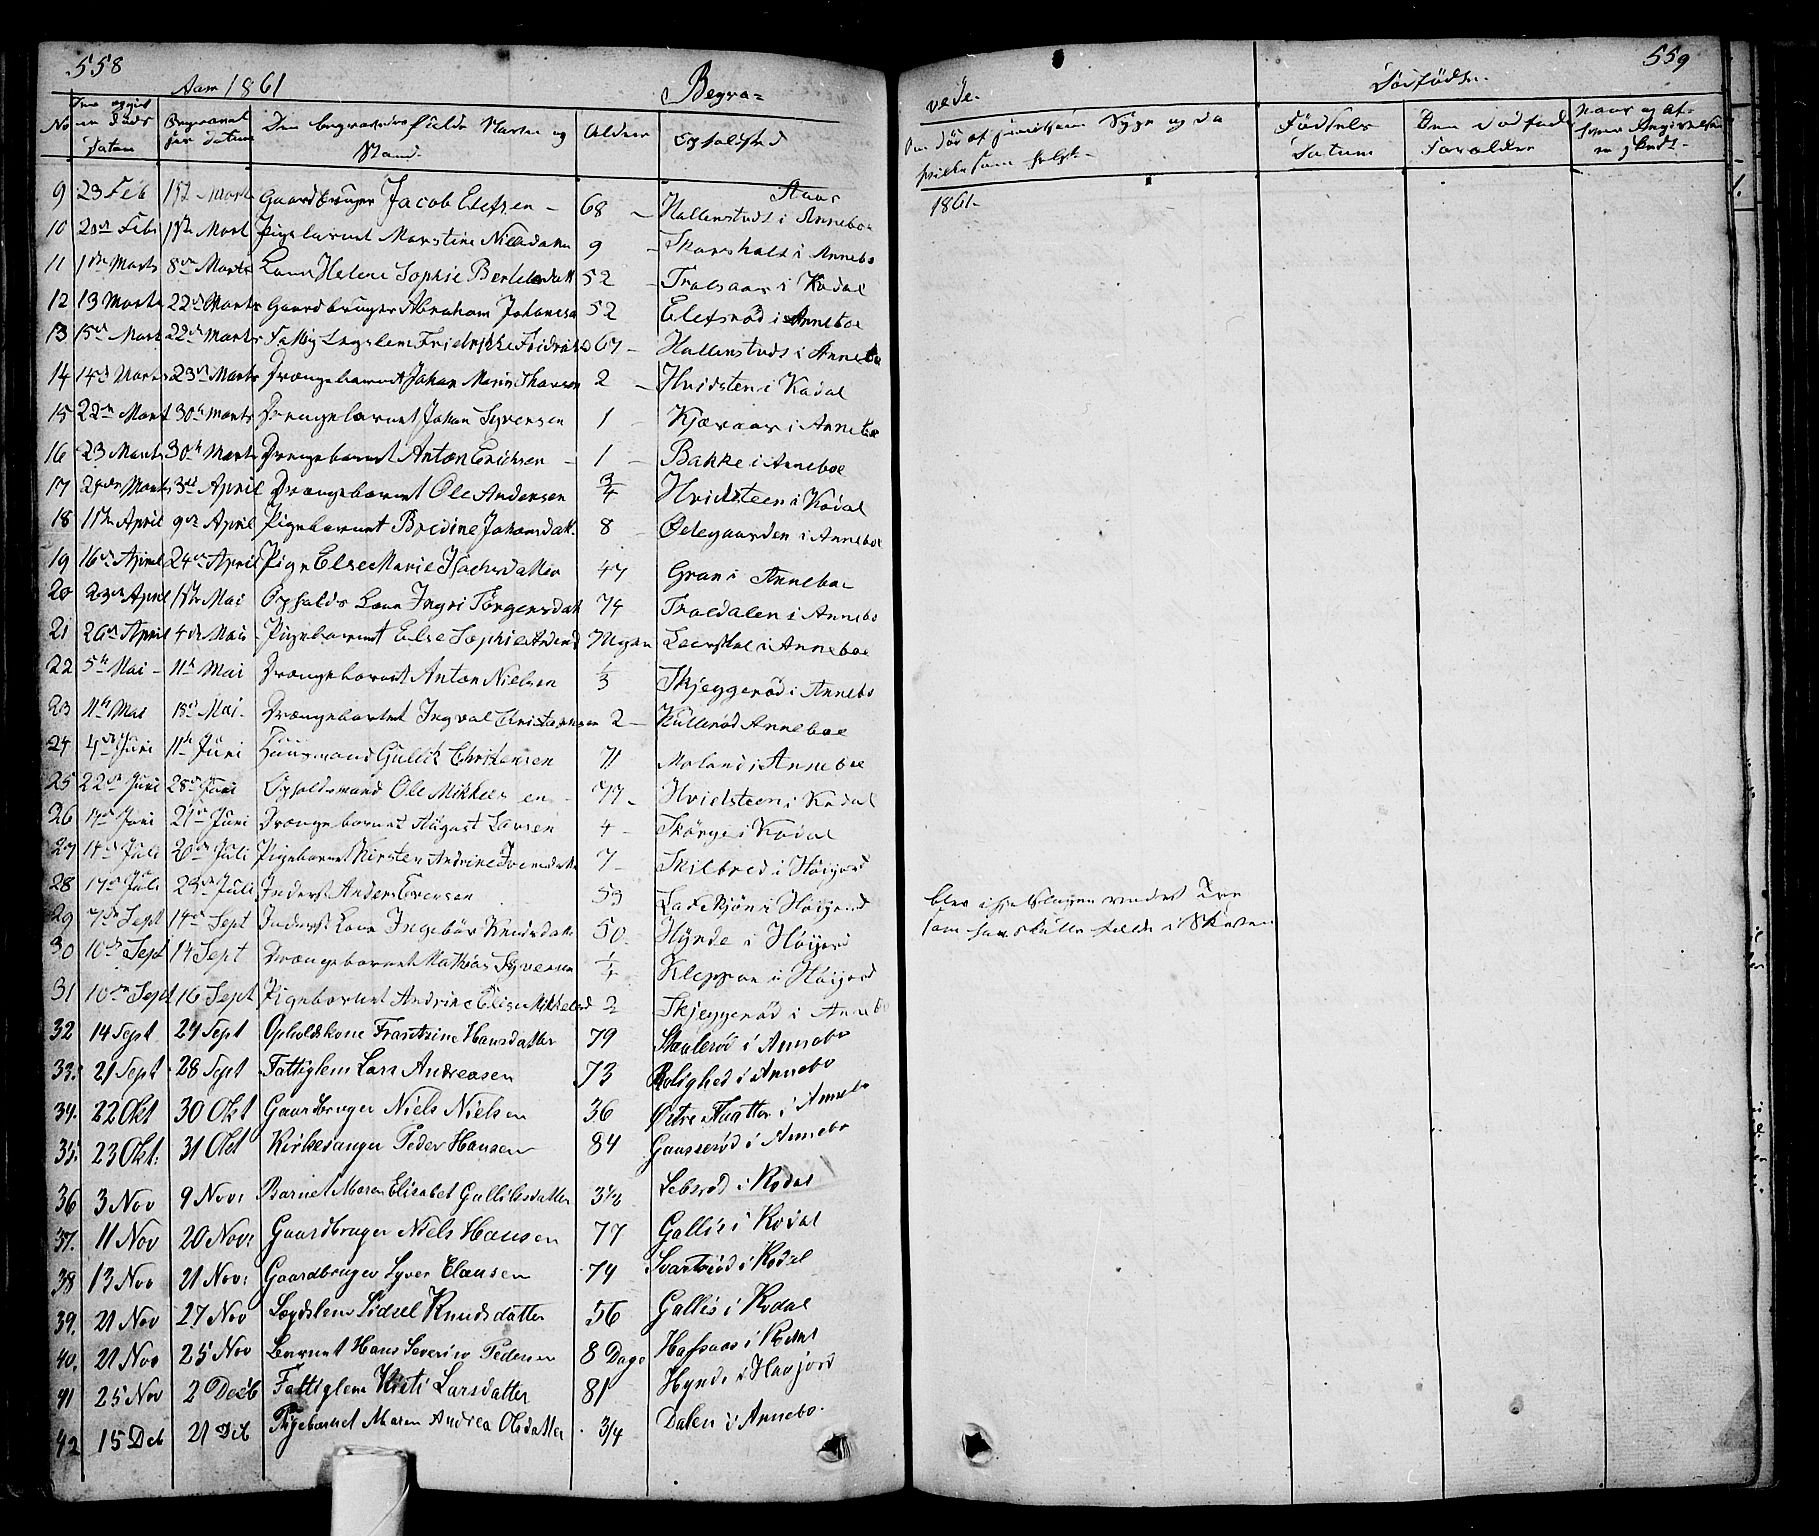 558
Aar 1861
Begra=
No
Datum
Begravelses Datum
Den begravedes fulde Navn og
Stand.
Alder
Opholdsted
9 23 Feb 1st Mart Gaardbruger Jacob Elefsen - 68 - Hallenstvedt i Anneboe
10 20de Feb 1ste Mart Pigebarnet Marstine Nielsdatter 9 - Skarsholt i Annebo
11 1ste Marts 8de Marts Kone Helene Sophie Bertelsdatt 52 Trolsaas i Kodal
12 13 Marts 22de Marts Gaardbruger Abraham Johansen 52 Elefsrød i Anneboe
13 15de Mart 22de Marts Fattig Lægslem Fridrikke Fridriks 67 - Hallenstvedt i Annebo
14 14de Marts 23de Marts Drængebarnet Johan Marin Thorsen 2 - Hvidsten i Kodal
15 22de Mart 30te Marts Drengebarnet Johan Syversen 1 - Kjæraas i Anneboe
16 23 Marts 30te Marts Drengebarnet Anton Erichsen - 1 - Bakke i Anneboe
17 Marts 3de April Drængebarnet Ole Andersen 3/4 Hvidsteen i Kodal
18 1ste April 9de April Pigebarnet Bredine Johansdatt. 8 - Ødegaarden i Anneboe
19 16de April 24de April Pige Else Marie Isachsdatter 47 Gran i Anneboe
20 23de April 1ste Mai Opholds Kone Ingri Jørgensdatt 74 Troldalen i Annebo
21 26de April 4de Mai Pigebarnet Else Sophie Andersd 7 Maaneder i Anneboe
22 5te Mai - 11te Mai Drængebarnet Anton Nielsen 1/3 Skjeggerød i Annebo
23 11te Mai 18de Mai - Drængebarnet Ingval Christensen 2 - Kullerød Anneboe
24 4de Juni 11te Juni Huusmand Gullik Christensen 71 Moland i Anneboe
25 22de Juni 28de Juni Opholdsmand Ole Mikkelsen - 77 - Hvidsteen i Kodal
26 17de Juni 21de Juni Drængebarnet August Larsen 4 - Skorge i Kodal
27 14de Juli 20de Juli Pigebarnet Kirsten Andrine Iversdatter 7 - Skilbred i Høijord
28 17de Juli 23de Juli Inderst Anders Evensen 53 i Høijord
29 7de Sept 14de Sept Inderst Kone Ingebør Knudsdatt 50 - Hynde i Høijord
30 10de Sept 14 Sept Drængebarnet Mathias Syversen 1/4 Kleppan i Høijord
31 10de Sept 16 Sept Pigebarnet Andrine Elise Mikkelsd 2 Skjeggerød i Annebo
32 14 Sept 24 Sept Opholdskone Frantzine Hansdatter 79 Skaulerød i Annebo
33. 21 Sept 28 Sept Fattiglem Lars Andreasen 73 Rolighed i Annebo
34. 22 Okt 30 Okt Gaardbruger Niels Nielsen 36 Østre Flaatten i Annebo
35. 23 Okt: 31 Okt Kirkesanger Peder Hansen 84 Gaasserød i Annebo
36 3 Nov 9 Nov: Barnet Maren Elisabet Gulliksdatter 3 1/2 Lebsrød i Kodal
37. 11 Nov 20 Nov: Gaardbruger Niels Hansen 77 Gallis i Kodal
38 13 Nov 21 Nov: Gaardbruger Syver Clausen 74 Svartsrød i Kodal
39. 21 Nov 27 Nov Lægdslem Sidsel Knudsdatter 56 Gallis i Kodal
40. 21 Nov 25 Nov Barnet Hans Severin Pedersen 8 Dage Hafsaas i Kodal
41 25 Nov 2 Decb Fattiglem Kisti Larsdatter 81 Hynde i Høijord
42 15 Deb 21 Deb Pigebarnet Maren Andrea Olsdatter 3/4 Dalen i Annebo.
559
velse.
Dødfødte.
Om Død af Syge og da
hvilken som helst -
Fødsels
Datum
Den dødfødtes
Forældre
Naar og af
hvem Angivelsen
er skeedt -
1861 -
blev ihjelslagen ved et Træ
som han skulle fælde i Skoven